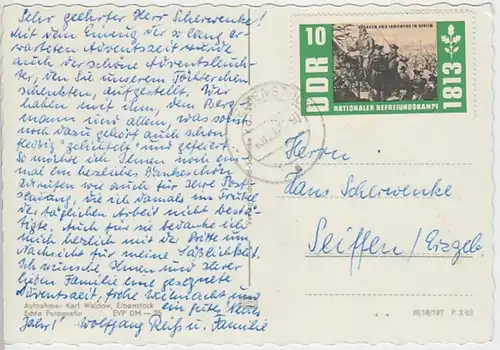 Sehr geehrter Herr Scherwenke!
Mit dem Einzug der so lang er-
warteten Adventszeit wurde
auch der schöne Adventsleuch-
ter, den Sie unserem Töchterchen
schenkten, aufgestellt. Wir
haben mit ihm, dem Berg-
mann und allem, was sonst
noch dazu gehört auch schon
fleißig und gefeiert.
So möchte ich Ihnen noch ein-
mal ein herzliches Dankeschön
zurufen wie auch für Ihre Post-
sendung, die ich damals im Trubel
der täglichen Arbeit nicht bestä-
tigte. Auch für sie bedanke ich
mich herzlich mit der Bitte um
Nachsicht für meine Säßlichkeit.
Ich wünsche Ihnen und Ihrer
lieben Familie eine gesegnete
Adventszeit, frohe Weihnacht und
ein gutes "Neues
Jahr!" Wolfgang Reiß u. Familie
Aufnahme: Karl Waldow, Eibenstock
Echte Fotografie EVP DM —.25
KOSAKEN UND LANDWEHR IN BERLIN
10
DDR
1813
NATIONALER BEFREIUNGSKAMPF
Herrn
Hans Scherwenke
Seiffen/Erzgeb.
III/18/197 P 3/63